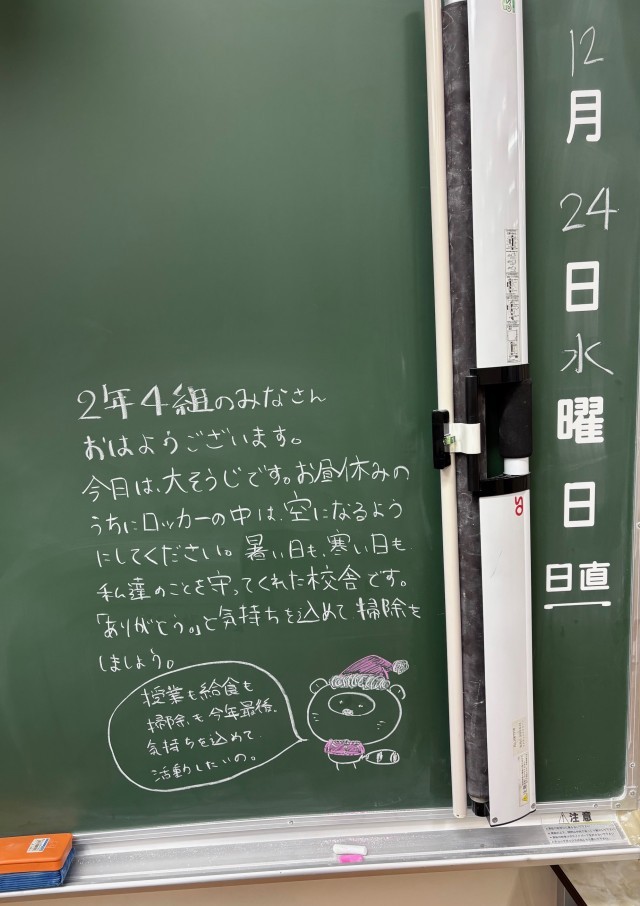 12
月
24
日
水
曜
日
日直
2年4組のみなさん
おはようございます。
今日は、大そうじです。お昼休みの
うちにロッカーの中は、空になるよう
にしてください。暑い日も、寒い日も
私達のことを守ってくれた校舎です。
「ありがとう。」と気持ちを込めて掃除を
しましょう。
授業も給食も
掃除も今年最後。
気持ちを込めて
活動したいの。
注意